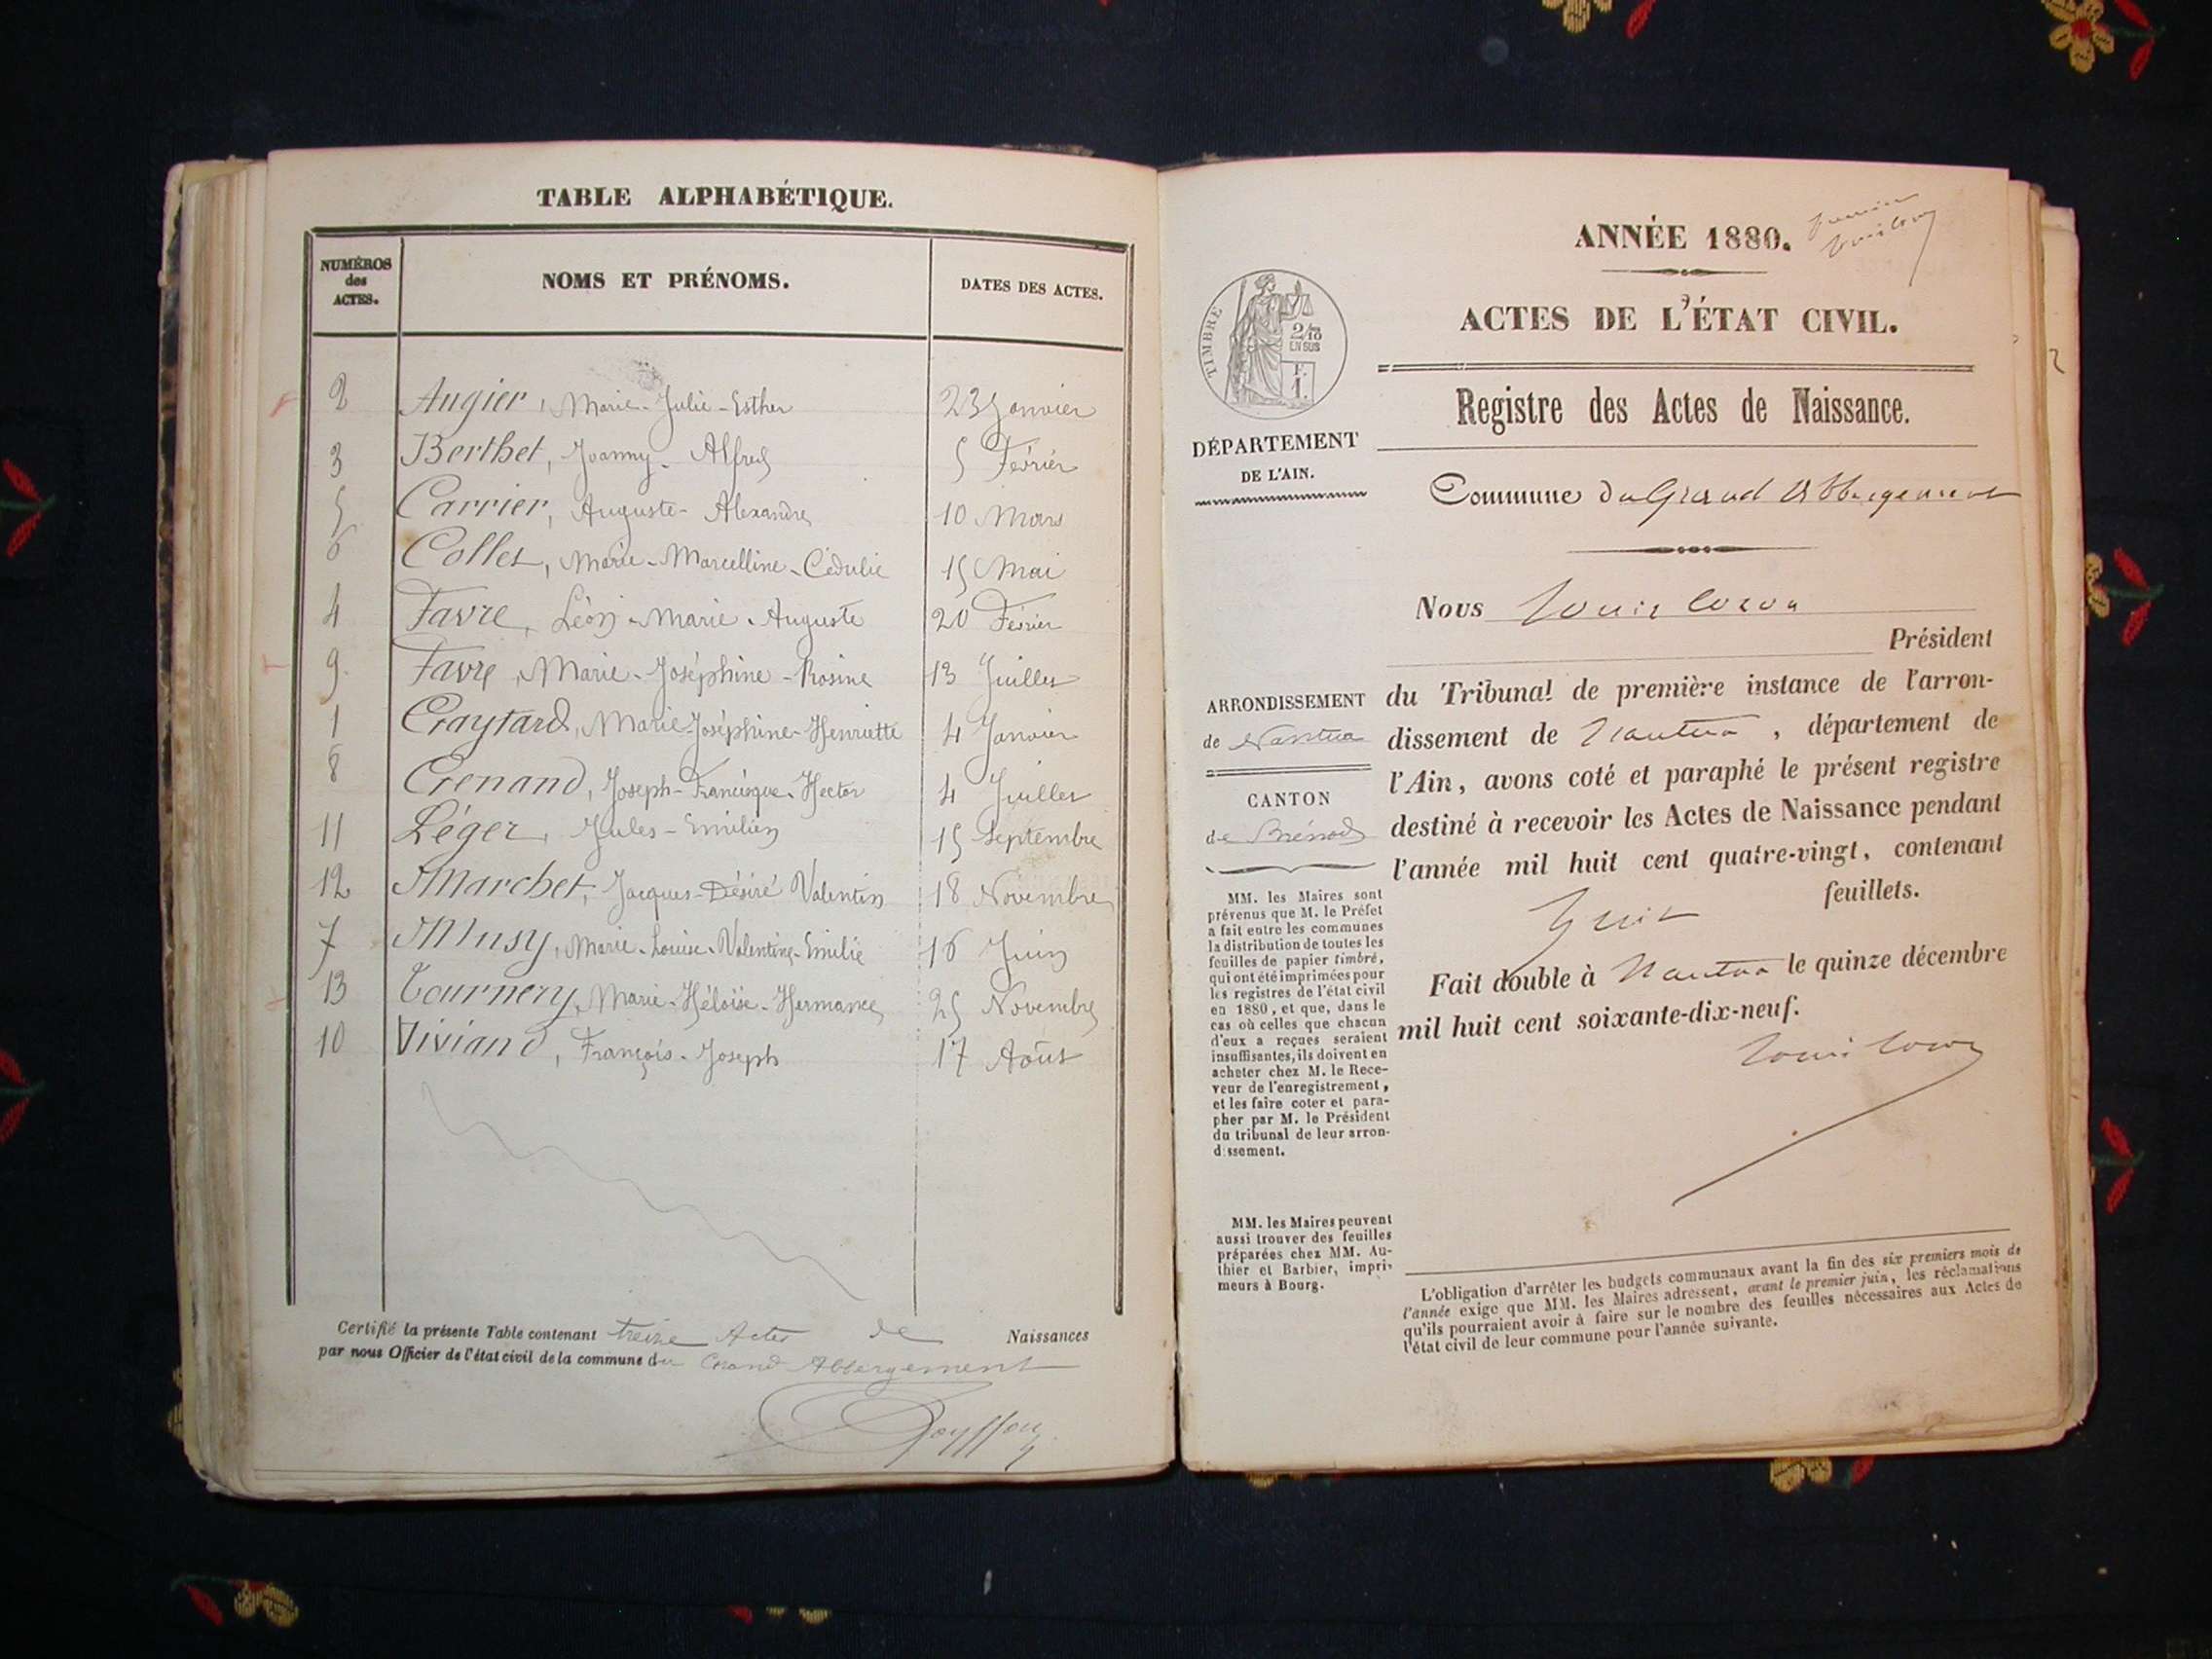 TABLE ALPHABÉTIQUE.
NUMÉROS
des
ACTES.
NOMS ET PRÉNOMS.
DATES DES ACTES.
2 Augier, Marie-Julie-Esther 23 Janvier
3 Berthet, Joanny-Alfred 5 Février
5 Carrier, Auguste-Alexandre 10 Mars
6 Collet, Marie-Marcelline-Cédulie 15 Mai
4 Favre, Léon-Marie-Auguste 20 Février
9 Favre, Marie-Joséphine-Rosine 13 Juillet
1 Marie-Joséphine-Henriette 4 Janvier
8 Joseph-Francisque-Hector 4 Juillet
11 Léger, Jules-Emilien 15 Septembre
12 Marchet, Jacques-Désiré Valentin 18 Novembre
7 Musy, Marie-Louise-Valentine-Emilie 16 Juin
13 Tournery, Marie-Héloïse-Hermance 25 Novembre
10 Viviand, François-Joseph 17 Août
Certifié la présente Table contenant treize Actes de Naissances
par nous Officier de l'état civil de la commune du Grand Abbergement
ANNÉE 1880.
ACTES DE L'ÉTAT CIVIL.
TIMBRE
2/10
EN SUS
F.
1.
Registre des Actes de Naissance.
DÉPARTEMENT
DE L'AIN.
Commune du Grand Abbergement
Nous Louis
Président
ARRONDISSEMENT
de Nantua
CANTON
de Brénod
du Tribunal de première instance de l'arron-
dissement de Nantua, département de
l'Ain, avons coté et paraphé le présent registre
destiné à recevoir les Actes de Naissance pendant
l'année mil huit cent quatre-vingt, contenant
huit feuillets.
Fait double à Nantua le quinze décembre
mil huit cent soixante-dix-neuf.
MM. les Maires sont
prévenus que M. le Préfet
a fait entre les communes
la distribution de toutes les
feuilles de papier timbré,
qui ont été imprimées pour
les registres de l'état civil
en 1880, et que, dans le
cas où celles que chacun
d'eux a reçues seraient
insuffisantes, ils doivent en
acheter chez M. le Rece-
veur de l'enregistrement,
et les faire coter et para-
pher par M. le Président
du tribunal de leur arron-
dissement.
MM. les Maires peuvent
aussi trouver des feuilles
préparées chez MM. Au-
thier et Barbier, impri-
meurs à Bourg.
L'obligation d'arrêter les budgets communaux avant la fin des six premiers mois de
l'année exige que MM. les Maires adressent, avant le premier juin, les réclamations
qu'ils pourraient avoir à faire sur le nombre des feuilles nécessaires aux Actes de
l'état civil de leur commune pour l'année suivante.